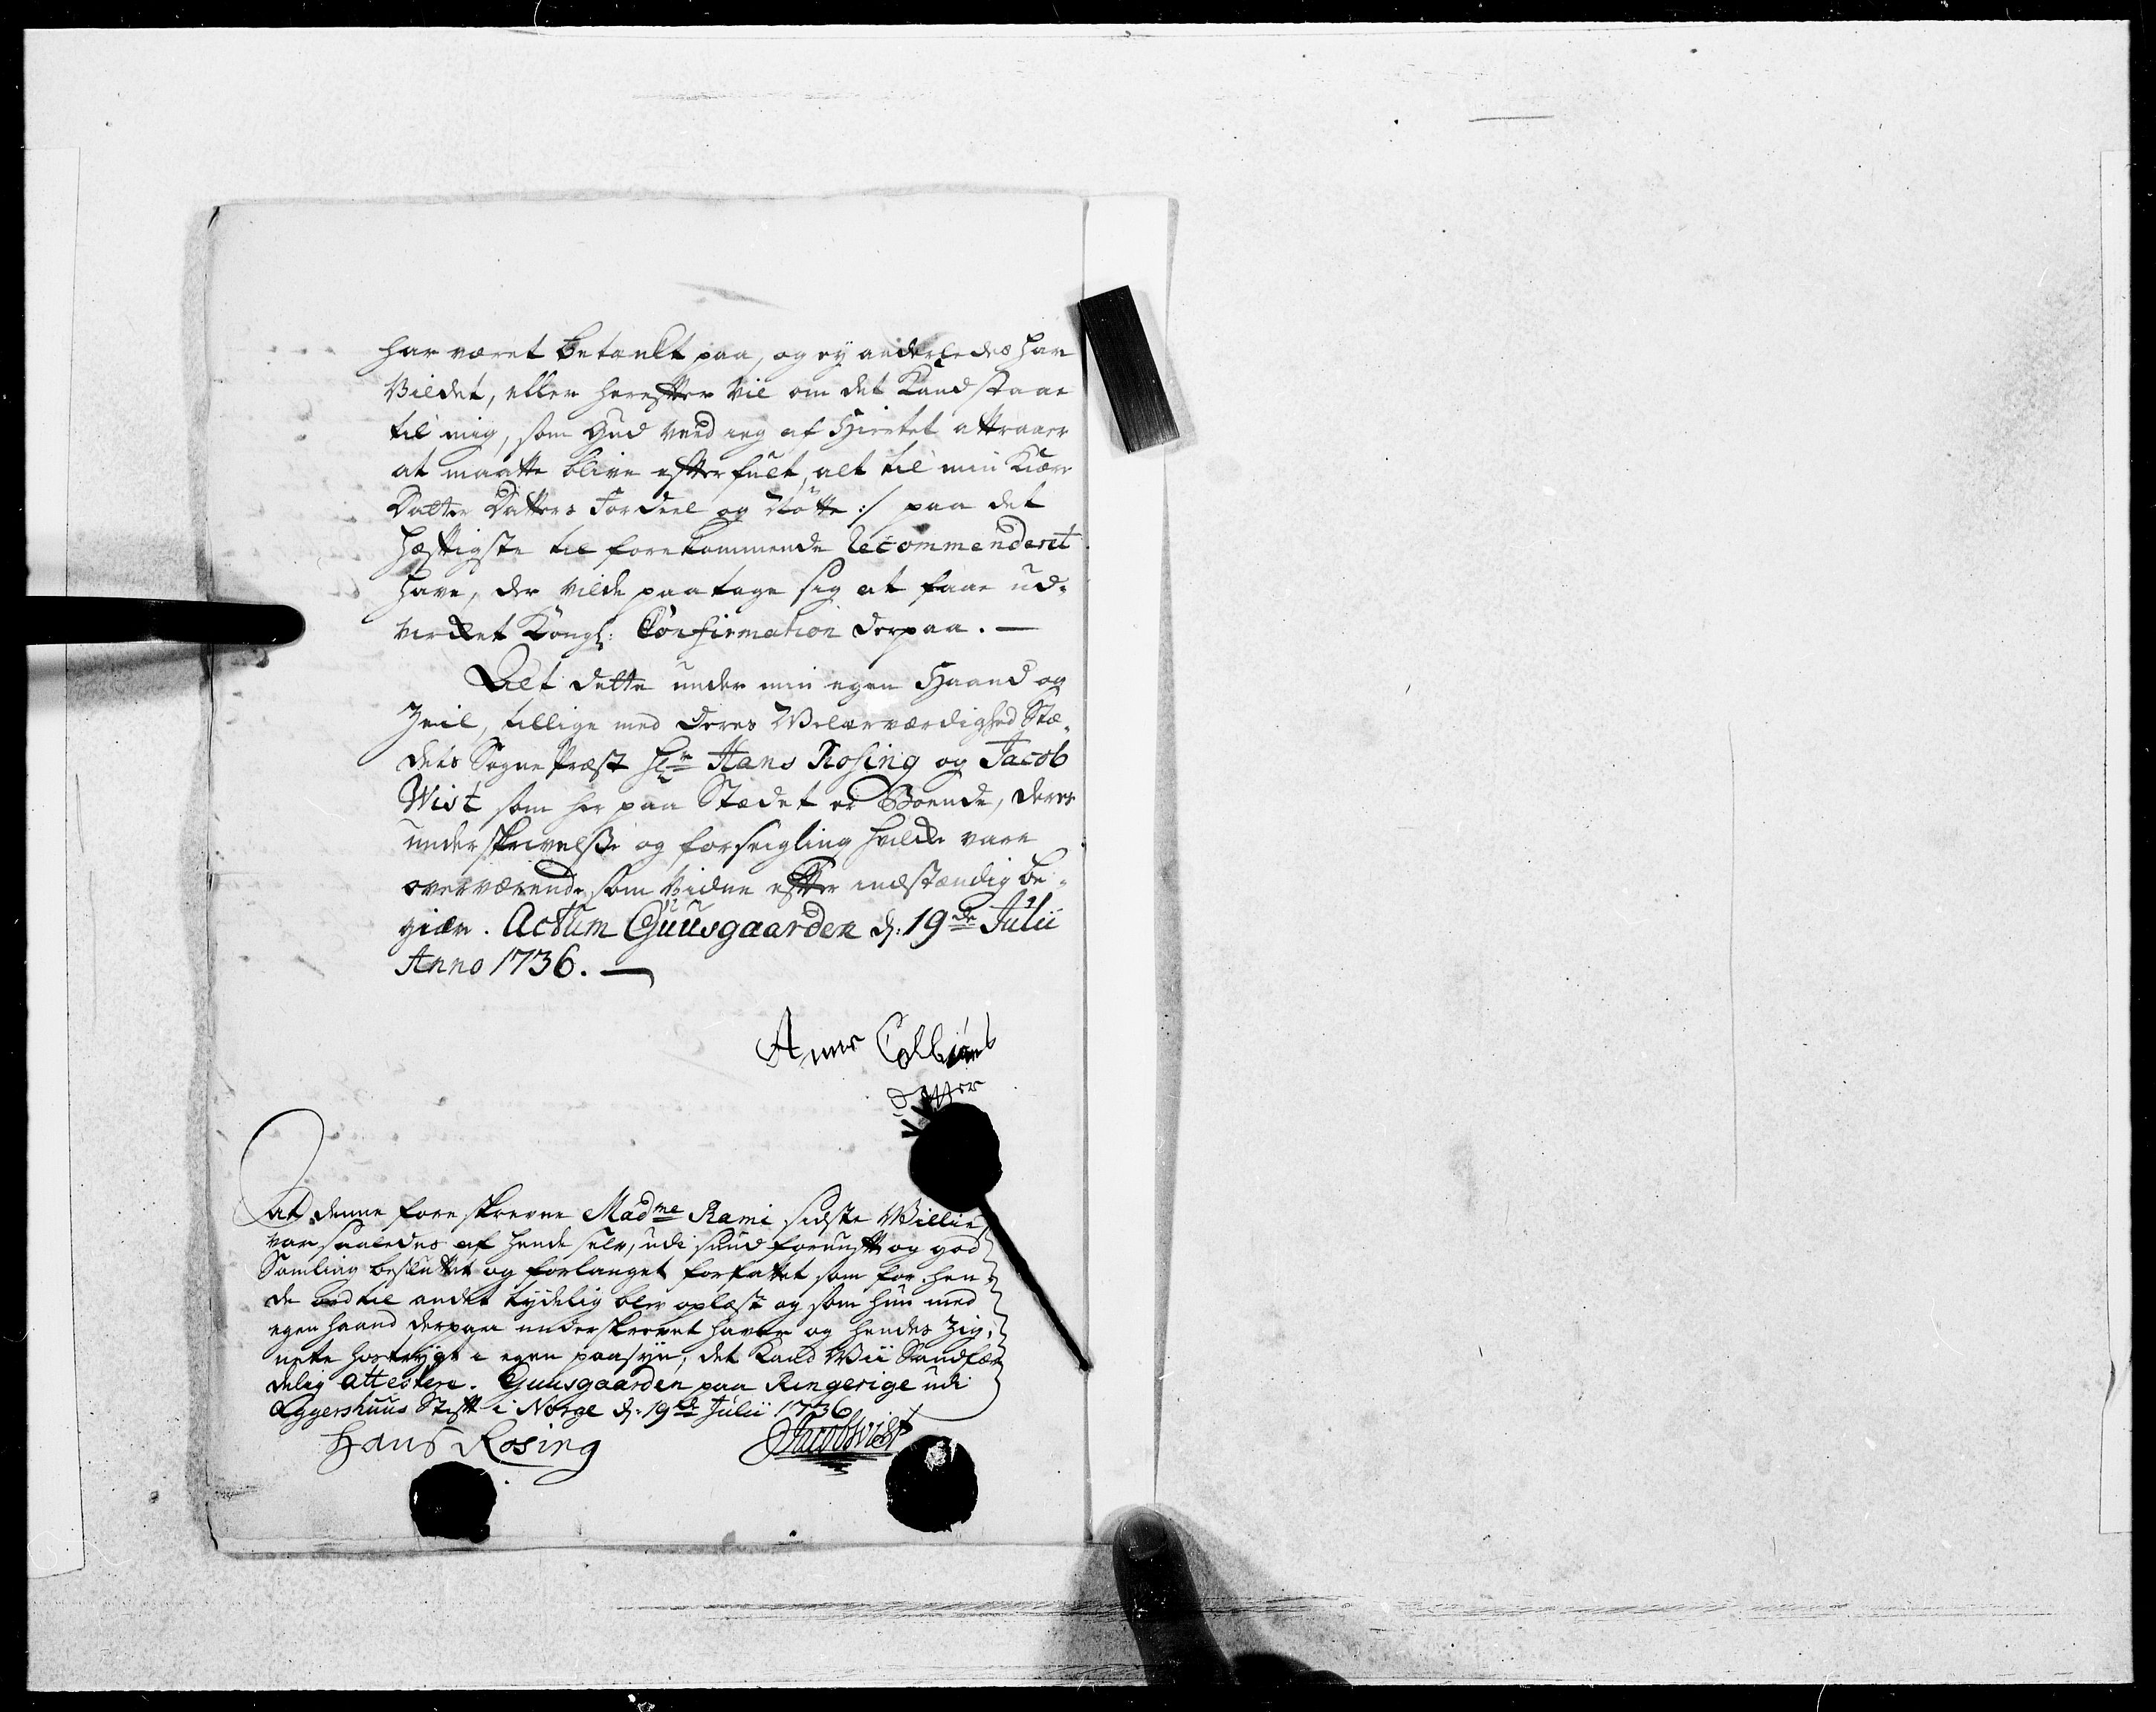 har været betænkt paa, og ey anderledes har
Vildet, eller herefter vil om det Kand staae
til mig, som Gud veed ieg af Hiertet attraaer
at maatte blive efterfult, alt til min Kiære
Datter Datters Fordeel og Nötte :/ paa det
hæftigste til forekommende Recommenderet
have, der vilde paatage sig at faae ud-
virket Kongl: Confirmation derpaa. —
Alt dette under min egen Haand og
Zeil, tillige med Deres Velærværdighed Stæ-
dets Sogne Præst Hr Hans Rosing og Jacob
Wist som her paa Stædet er Boende, deres
underskrivelse og forseigling hvilke vare
overværende som Vidne efter indstændig be-
giær. Actum Guusgaarden d: 19de Julii
Anno 1736. —
Anne Colbiörns
datter
At denne foreskrevne Madme Rami sidste Villie
var saaledes af hende selv, udi sund fornuft og god
Samling besluttet og forlanget forfattet som for hen-
de ord til andet tydelig blev oplæst og som hun med
egen haand derpaa underskrevet haver og hendes Zig-
nete hostrygt i egen paasyn, det Kand Wii Sandfær-
delig attestere. Guusgaarden paa Ringerige udi
Aggershuus Stift i Norge d: 19de Julii 1736
Hans Rosing
Jacob Wist